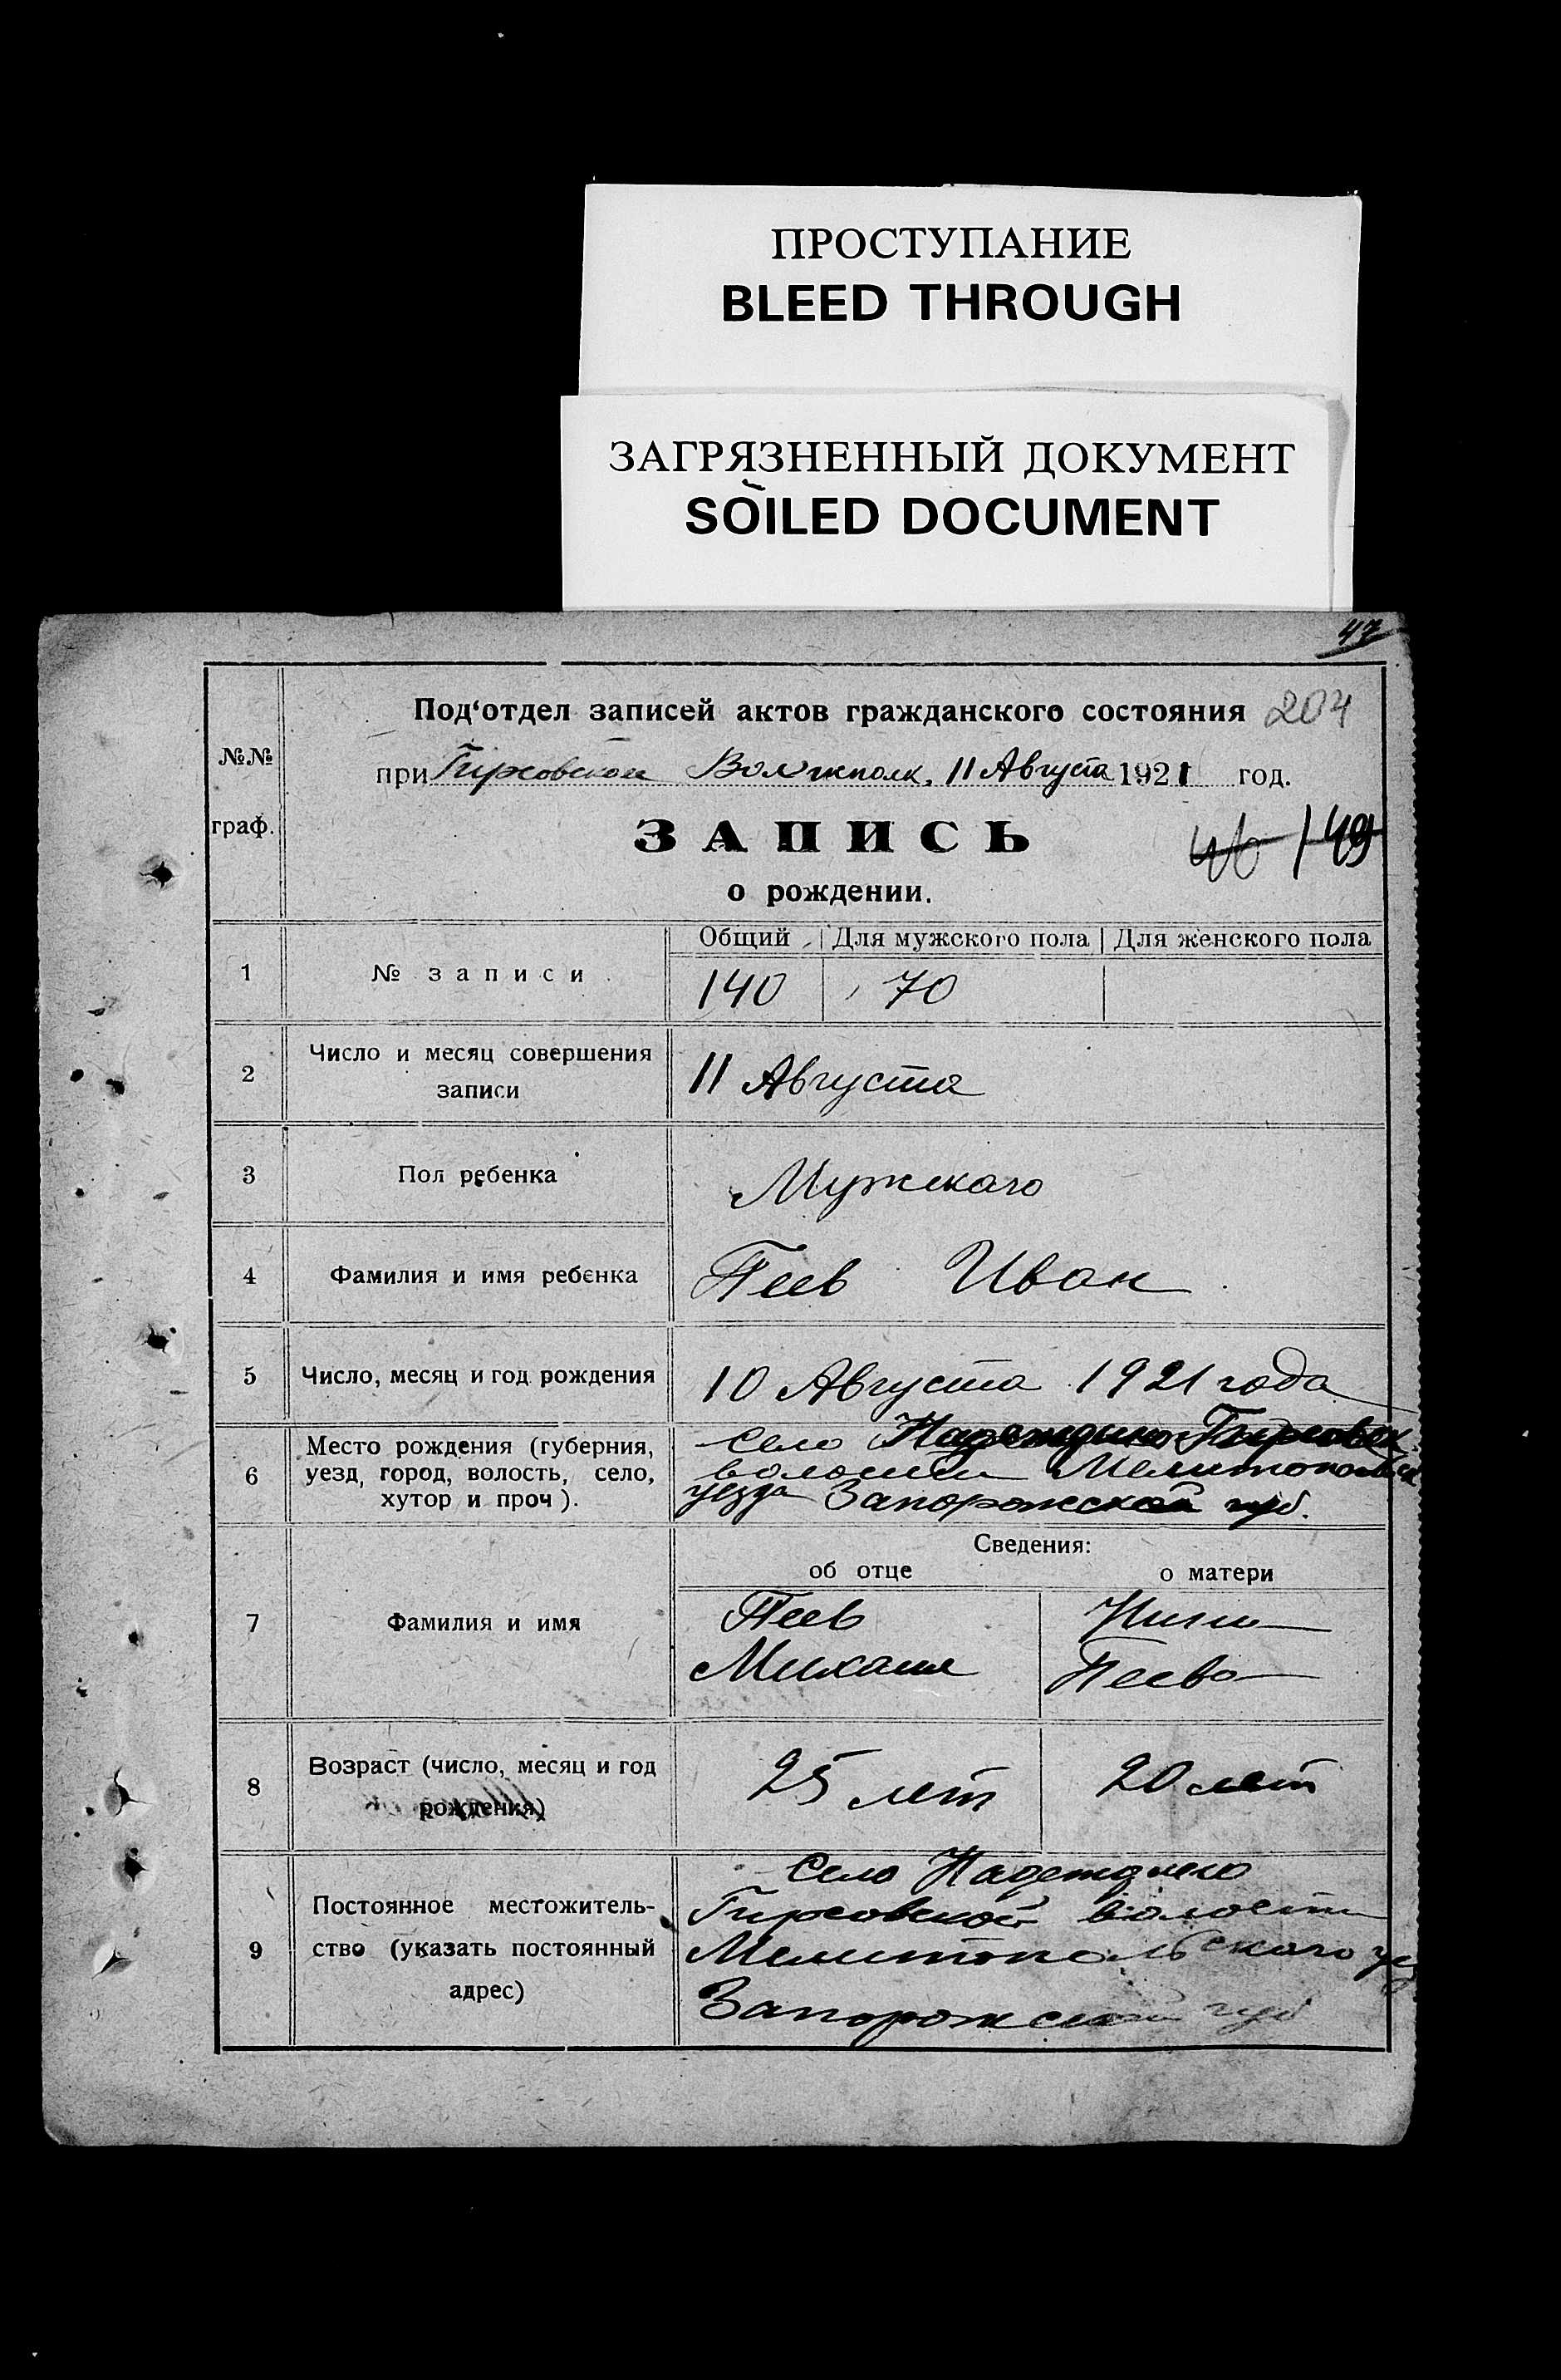 ПРОСТУПАНИЕ
BLEED THROUGH
ЗАГРЯЗНЕННЫЙ ДОКУМЕНТ
SOILED DOCUMENT
47
Под‘отдел записей актов гражданского состояния 204
№№
при Гирсовском Волисполк. 11 Августа 1921 год.
граф.
ЗАПИСЬ
46 149
о рождении.
Общий Для мужского пола Для женского пола
1 № записи 140 70
2 Число и месяц совершения
записи
11 Августа
3 Пол ребенка Мужскаго
4 Фамилия и имя ребенка Пеев Иван
5 Число, месяц и год рождения 10 Августа 1921 года
6 Место рождения (губерния,
уезд, город, волость, село,
хутор и проч).
село Надеждино Гирсовск.
волости Мелитопольск
уезда Запорожской губ.
Сведения:
об отце о матери
7 Фамилия и имя
Пеев
Михаил
Пеева
8 Возраст (число, месяц и год
рождения)
25 лет 20 лет
9 Постоянное местожитель-
ство (указать постоянный
адрес)
Село Надеждино
Гирсовской волости
Мелитопольскаго уез
Запорожской губ